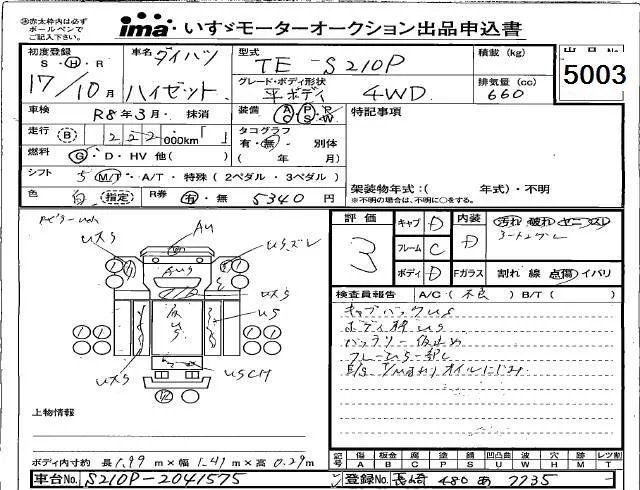 赤太枠内は必ず
ボールペンで
ご記入下さい。
ima いすゞモーターオークション出品申込書
初度登録 車名 型式 積載 (kg) 出品No.
S・H・R ダイハツ TE-S210P 5003
17/10月 ハイゼット グレード・ボディ形状 排気量 (cc)
平ボディ 4WD 660
車検 R8年3月・抹消 装備 特記事項
走行 000km タコグラフ
有・無・別体
燃料 G・D・HV 他( ) ( 年 月)
シフト 5 M/T・A/T・特殊 (2ペダル・3ペダル)
架装物年式:( 年式)・不明
色 白 指定 R券 有・無 5340円 ※不明の場合は、不明に○をする。
評価 3 キャブ D 内装 D 汚れ 破れ
フレーム C
ボディ D Fガラス 割れ 線 点傷 イバリ
検査員報告 A/C (不良) B/T ( )
キャブバックUS
ボディ枠US
バッテリー仮止め
E/S T/Mまわりオイルにじみ
AU
US
US
USCH
上物情報
ボディ内寸約 長1.99m×幅1.41m×高0.29m
記号 傷 板金 腐 塗 錆 凹凸曲 波 穴 跡 レツ割
A B C P S U W H M T
車台No. S210P-2041575 登録No. 長崎 480 あ 7735